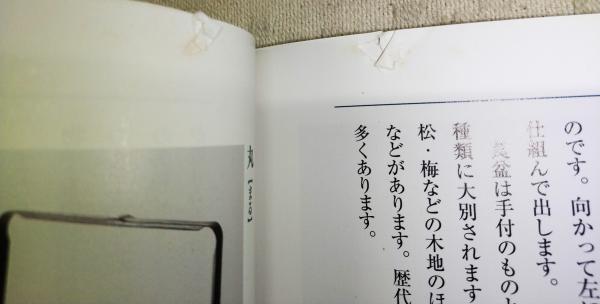 のです。向かって左
仕組んで出します。
莨盆は手付のもの
種類に大別されます
松・梅などの木地のほ
などがあります。歴代
多くあります。
丸